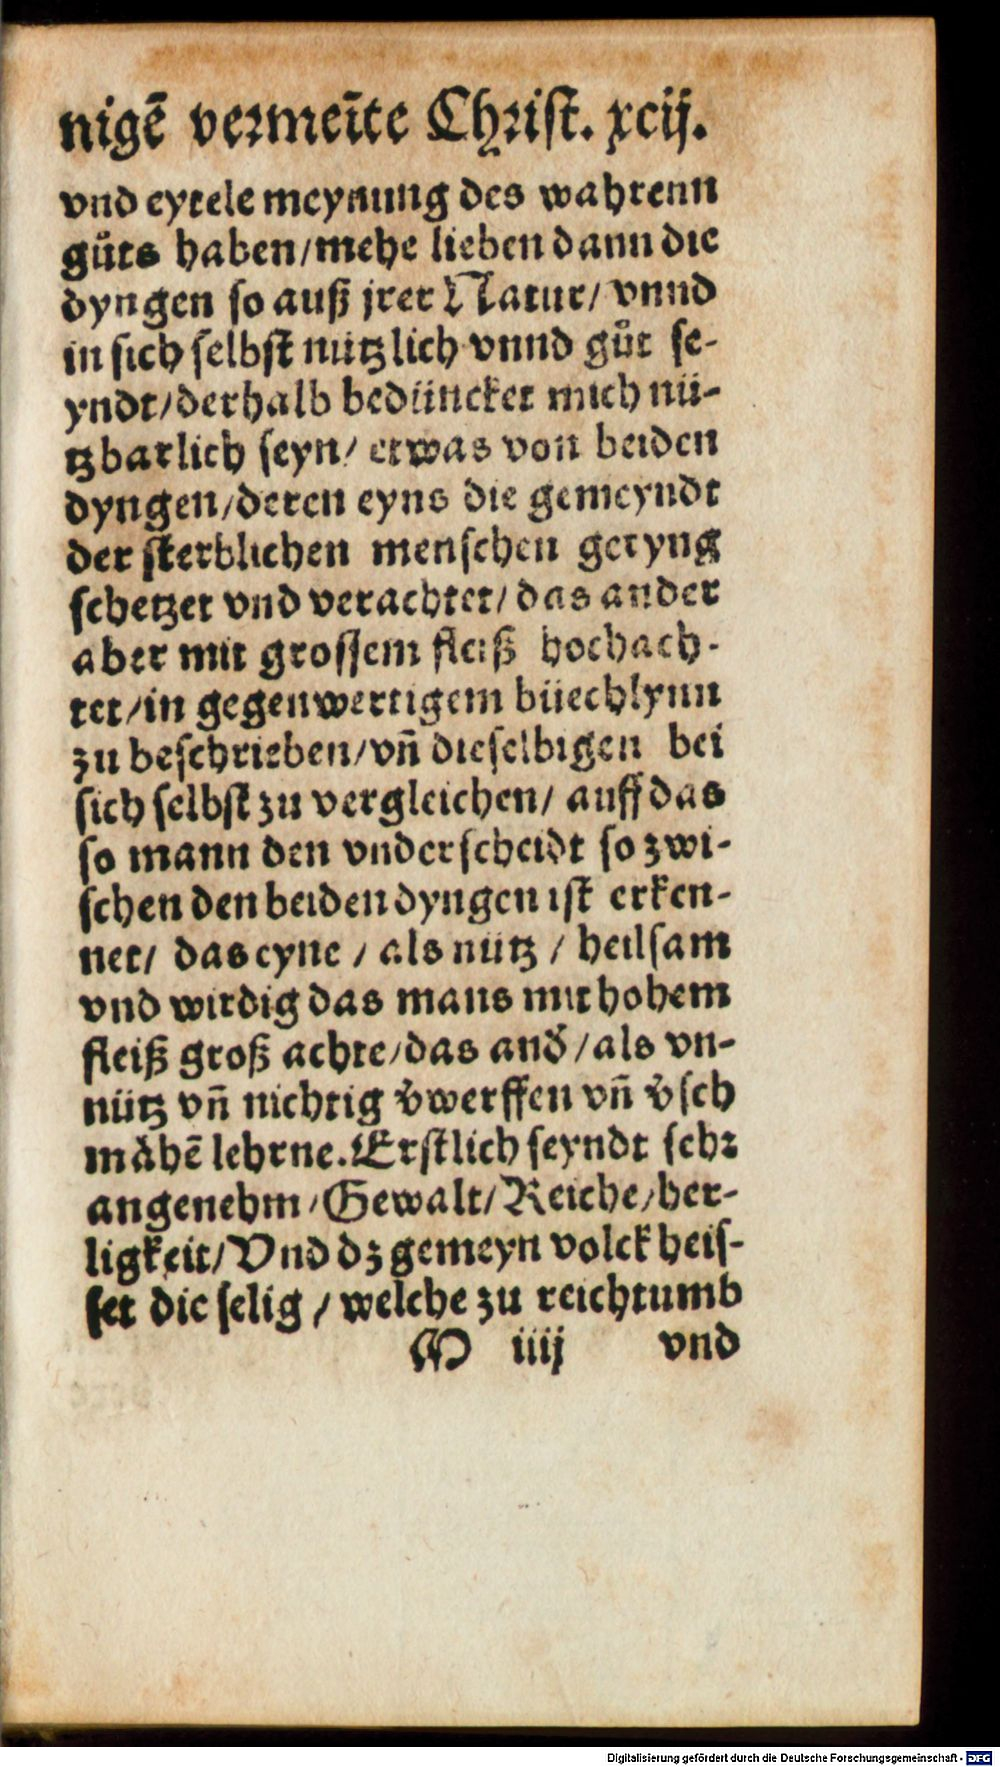 nigē vermeīte Christ. xcij.
vnd eytele meynung des wahrenn
gůts haben/mehe lieben dann die
dyngen so auß jrer Natur/ vnnd
in sich selbst nützlich vnnd gůt se-
yndt/derhalb bedüncket mich nü-
tzbarlich seyn/ etwas von beiden
dyngen/deren eyns die gemeyndt
der sterblichen menschen geryng
schetzet vnd verachtet/ das ander
aber mit grossem fleiß hochach-
tet/in gegenwertigem büechlynn
zu beschrieben/vn̄ dieselbigen bei
sich selbst zu vergleichen/ auff das
so mann den vnderscheidt so zwi-
schen den beiden dyngen ist erken-
net/ das eyne / als nütz / heilsam
vnd wirdig das mans mit hohem
fleiß groß achte/das and̛ /als vn-
nütz vn̄ nichtig v̛werffen vn̄ v̛sch
mähē lehrne. Erstlich seyndt sehr
angenehm/Gewalt/Reiche/her-
ligkeit/Vnd dz gemeyn volck heis-
set die selig / welche zu reichtumb
M iiij vnd
Digitalisierung gefördert durch die Deutsche Forschungsgemeinschaft - DFG